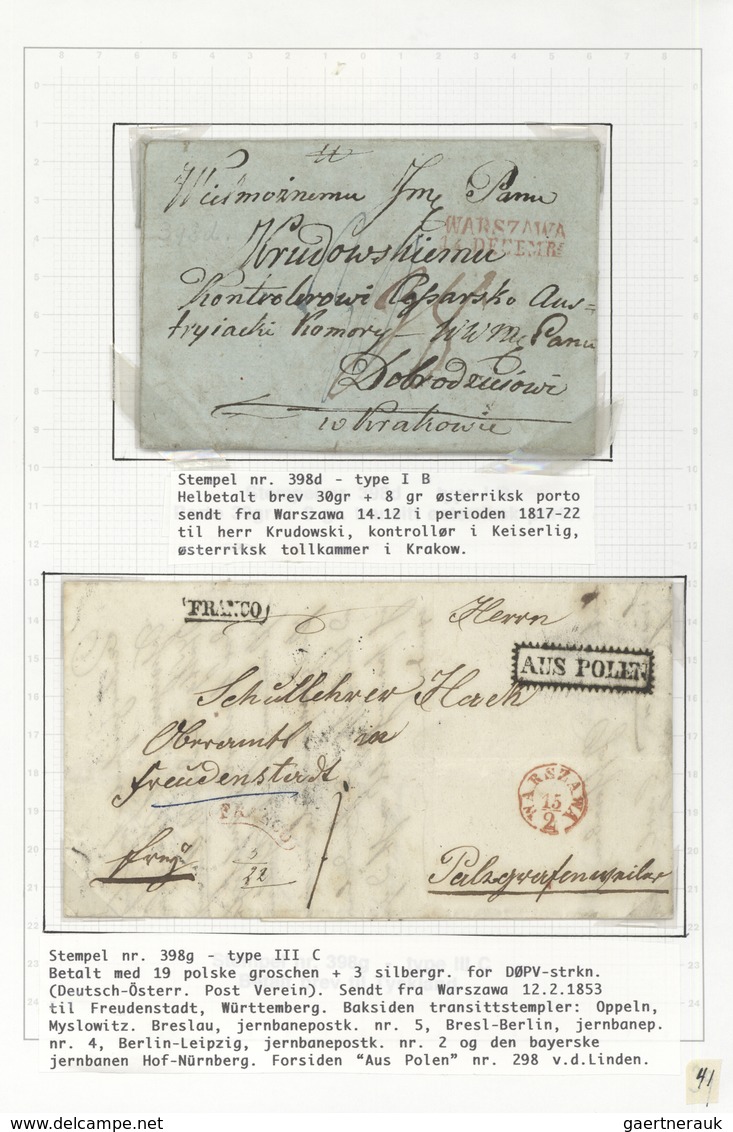 Wielmożnemu Jmę Panu
WARSZAWA
14 DECEMR
Krudowskiemu
Kontrolerowi Aus=
tryiacki Komory W W Mę Panu
Dobrodzieiowi
w Krakowie
Stempel nr. 398d - type I B
Helbetalt brev 30gr + 8 gr østerriksk porto
sendt fra Warszawa 14.12 i perioden 1817-22
til herr Krudowski, kontrollør i Keiserlig,
østerriksk tollkammer i Krakow.
FRANCO
Herrn
AUS POLEN
Schullehrer Hack
Oberamts in
Freudenstadt
WARSZAWA
15
2
FRANCO
frey
3
22
Palzgrafenweiler
Stempel nr. 398g - type III C
Betalt med 19 polske groschen + 3 silbergr. for DØPV-strkn.
(Deutsch-Österr. Post Verein). Sendt fra Warszawa 12.2.1853
til Freudenstadt, Württemberg. Baksiden transittstempler: Oppeln,
Myslowitz. Breslau, jernbanepostk. nr. 5, Bresl-Berlin, jernbanep.
nr. 4, Berlin-Leipzig, jernbanepostk. nr. 2 og den bayerske
jernbanen Hof-Nürnberg. Forsiden "Aus Polen" nr. 298 v.d.Linden.
41
gaertnerauk